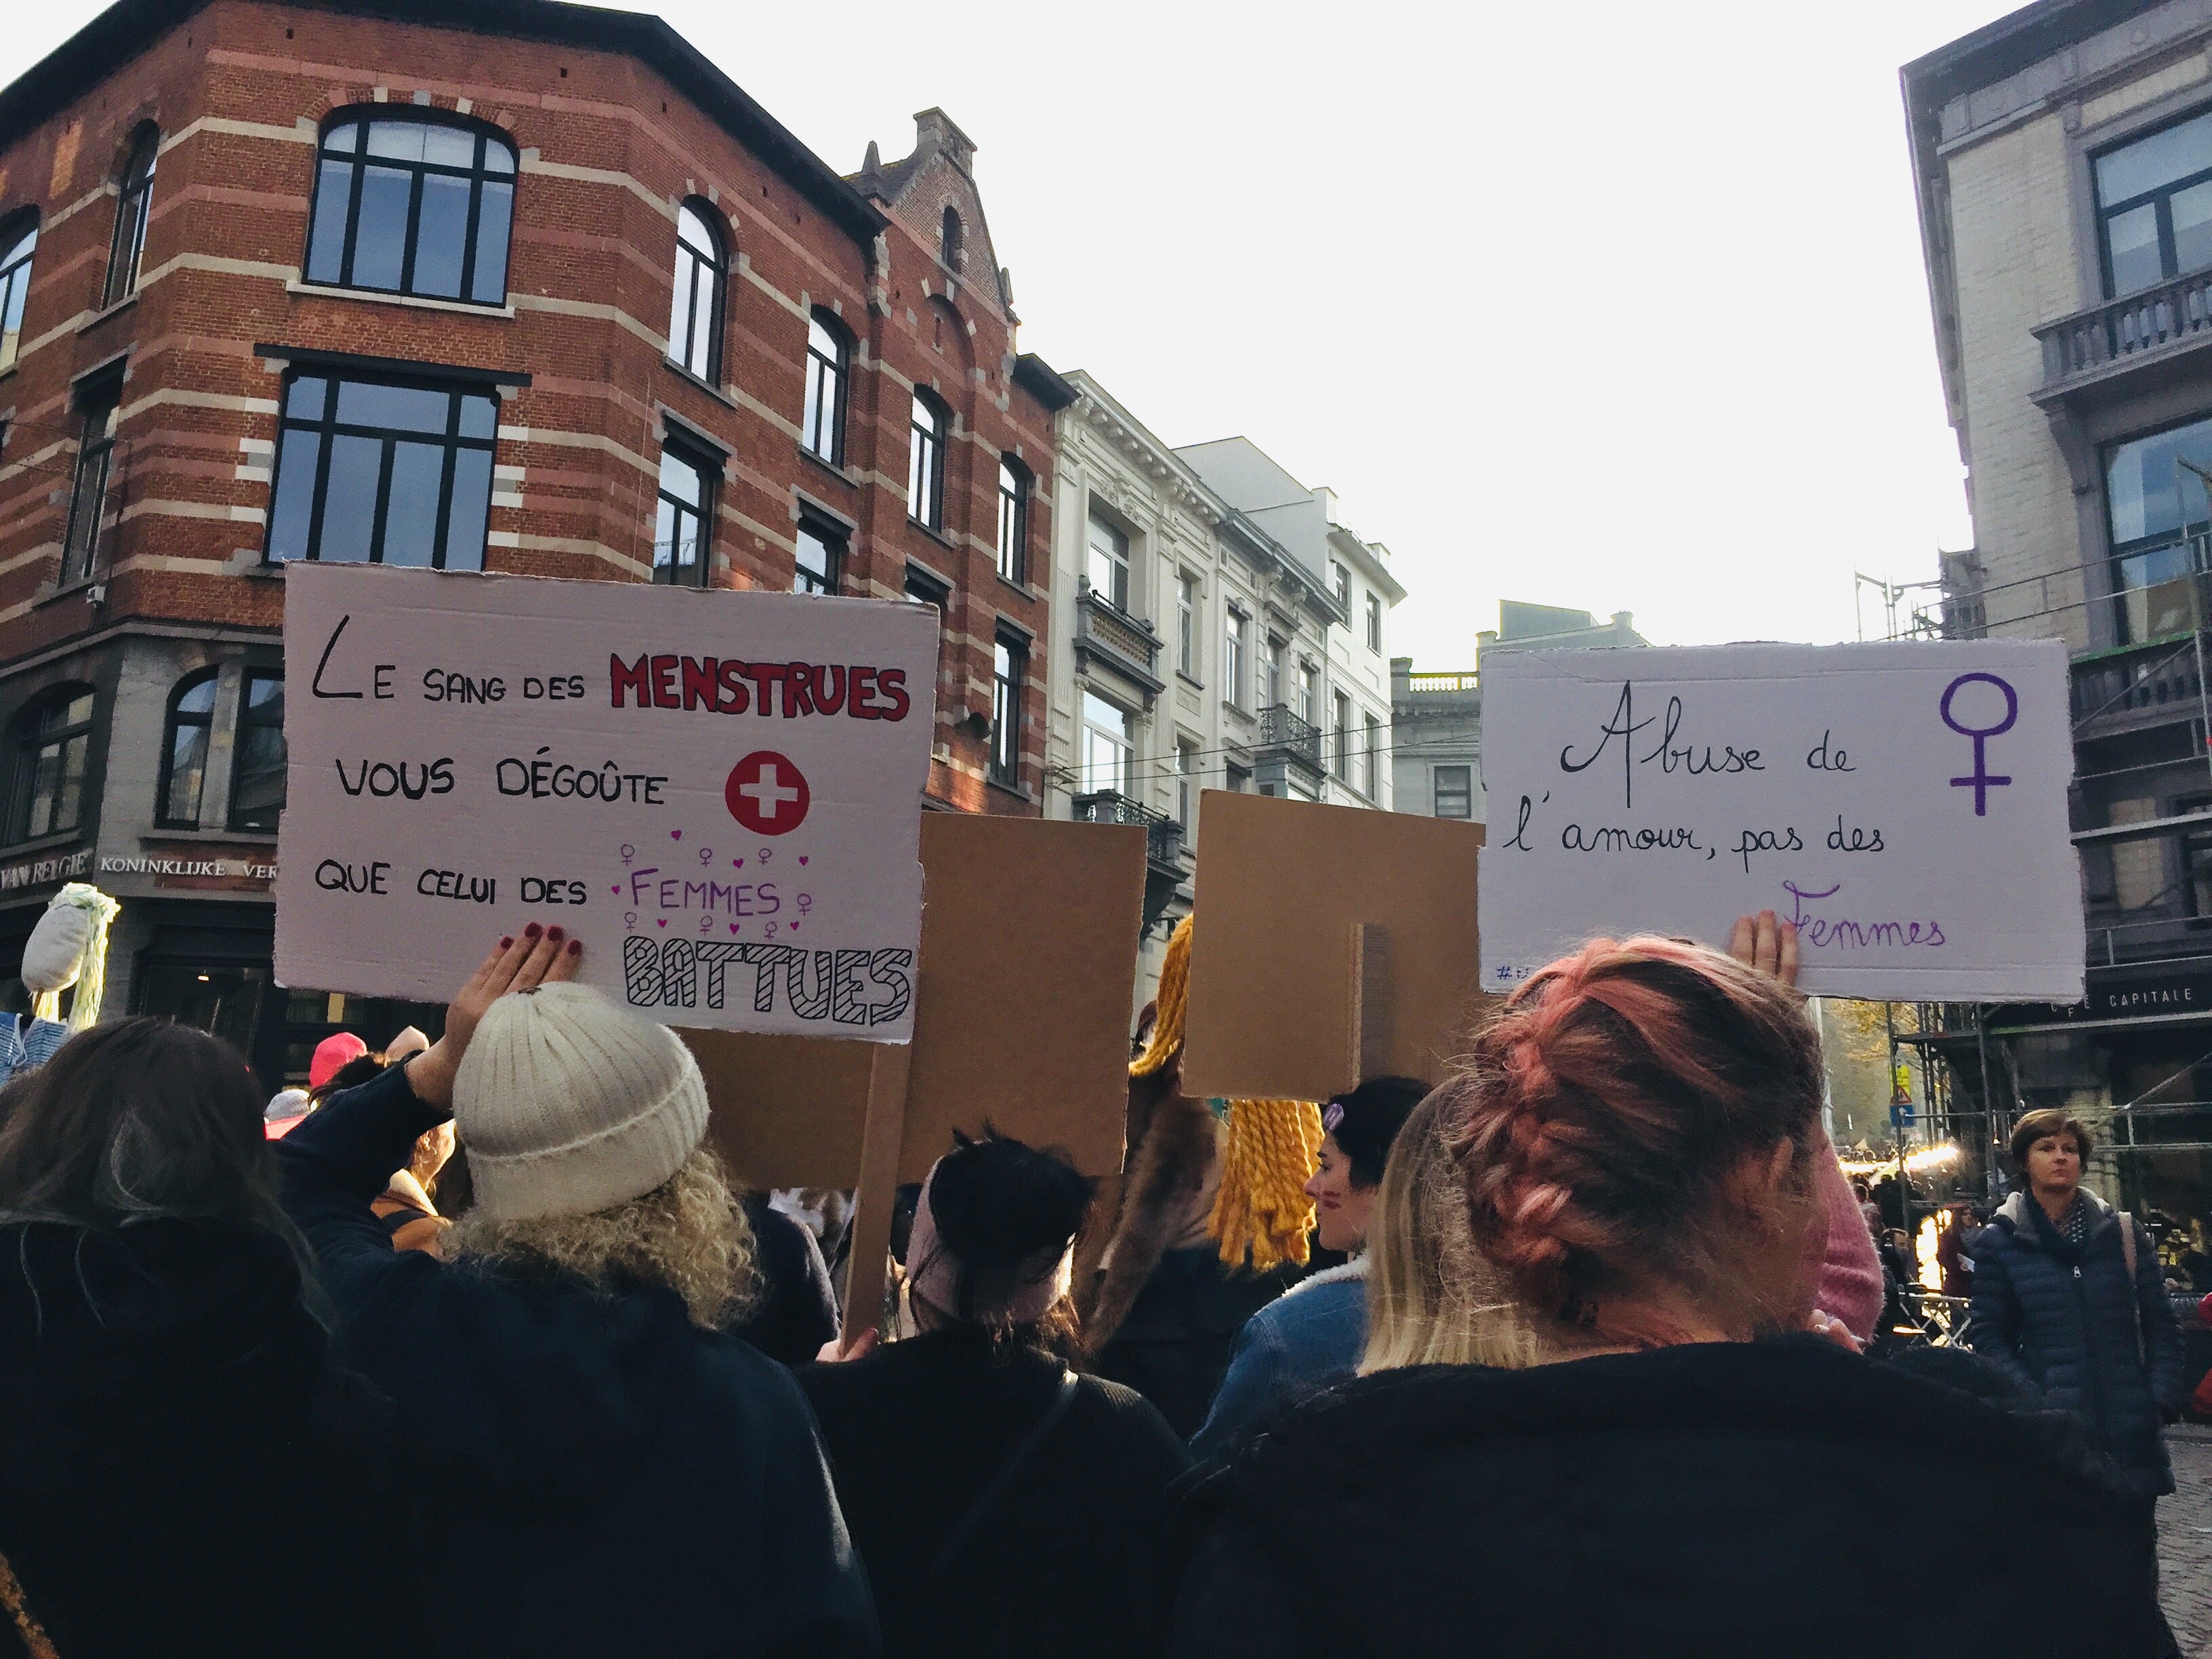 VAN BELGIE
KONINKLIJKE VER
LE SANG DES MENSTRUES
VOUS DÉGOÛTE
QUE CELUI DES FEMMES
BATTUES
Abuse de
l'amour, pas des
Femmes
CAPITALE